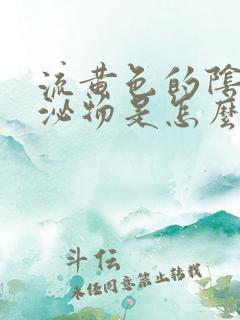 流黄色的陰
泌物是怎麽
斗伝
未任同意禁止转载